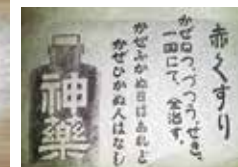 赤くすり
かぜひつ、づつう、せき、
一回にて、全治す。
かぜふかぬ日はあれど
かぜひかぬ人はなし
神藥